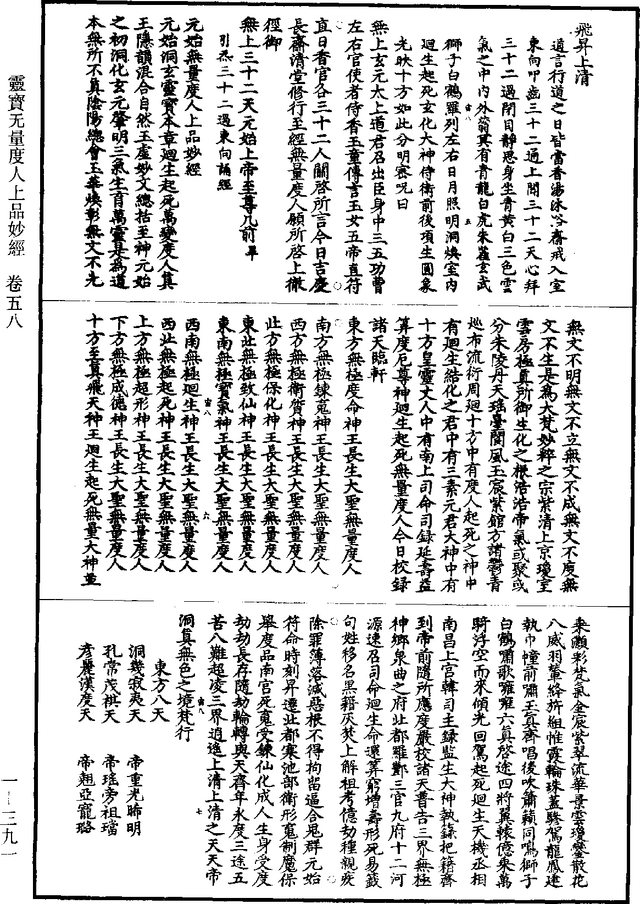 飛昇上清
道言行道之日皆當香湯沐浴齋戒入室
東向叩齒三十二通上聞三十二天心拜
三十二過閉目靜思身坐青黃白三色雲
氣之中內外蓊冥有青龍白虎朱雀玄武
獅子白鶴羅列左右日月照明洞煥室內
迴生起死玄化大神侍衛前後項生圓象
光映十方如此分明密呪曰
無上玄元太上道君召出臣身中三五功曹
左右官使者侍香玉童傳言玉女五帝直符
直日香官各三十二人關啓所言今日吉慶
長齋清堂修行至經無量度人願所啓上徹
徑御
無上三十二天元始上帝至尊几前畢
引炁三十二過東向誦經
元始無量度人上品妙經
元始洞玄靈寶本章迴生起死萬變度人真
王隱韻混合自然玉虛妙文總括至神元始
之初洞化玄元肇明三氣生育萬靈是為道
本無所不真陰陽總會玉華煥彰無文不光
無文不明無文不立無文不成無文不度無
文不生是為大梵妙粹之宗紫清上京瓊室
雲房極真所御生化之根浩浩帝氣或聚或
分朱陵丹天瑤臺閬風玉宸紫館方諸鬱青
𡵯布流衍周迴十方中有度人起死之神中
有迴生結化之君中有三素元君大神中有
十方皇靈丈人中有南上司命司錄延壽益
算度厄尊神迴生起死無量度人今日校錄
諸天臨軒
東方無極度命神王長生大聖無量度人
南方無極鍊䰟神王長生大聖無量度人
西方無極衛質神王長生大聖無量度人
北方無極保化神王長生大聖無量度人
東北無極致仙神王長生大聖無量度人
東南無極寶氣神王長生大聖無量度人
西南無極迴生神王長生大聖無量度人
西北無極起死神王長生大聖無量度人
上方無極超形神王長生大聖無量度人
下方無極成德神王長生大聖無量度人
十方至真飛天神王迴生起死無量大神並
乘灝彩梵氣金宸紫琴流華景雲瓊鑾散花
八威羽輦絡斾組帷霞輪珠蓋驂駕龍鳳建
執巾幢前嘯玉真齊唱後吹簫籟同鳴獅子
白鶴嘯歌嗈嗈六真啓途四將翼轅億乘萬
騎浮空而來傾光回駕起死迴生天機丞相
南昌上宮韓司主錄監生大神執籙把籍齊
到帝前隨所應度嚴校諸天普告三界無極
神鄉泉曲之府北都羅酆三官九府十二河
源速召司命迴生命還算窮增壽形死易籤
句姓移名黑籍灰焚上解祖考億劫種親疾
除罪薄落滅惡根不得拘留逼合䰟群元始
符命時刻昇遷北都寒池部衛形䰟制魔保
舉度品南宮死䰟受鍊仙化成人生身受度
劫劫長存隨劫輪轉與天齊年永度三途五
苦八難超凌三界逍遙上清上清之天天帝
洞真無色之境梵行
東方八天
洞幾寂夷天　帝重光睎明
孔常茂棋天　帝瑤旁祖璫
彥麗漢度天　帝翹亞寵璐
靈寶无量度人上品妙經　卷五八
一―三九一